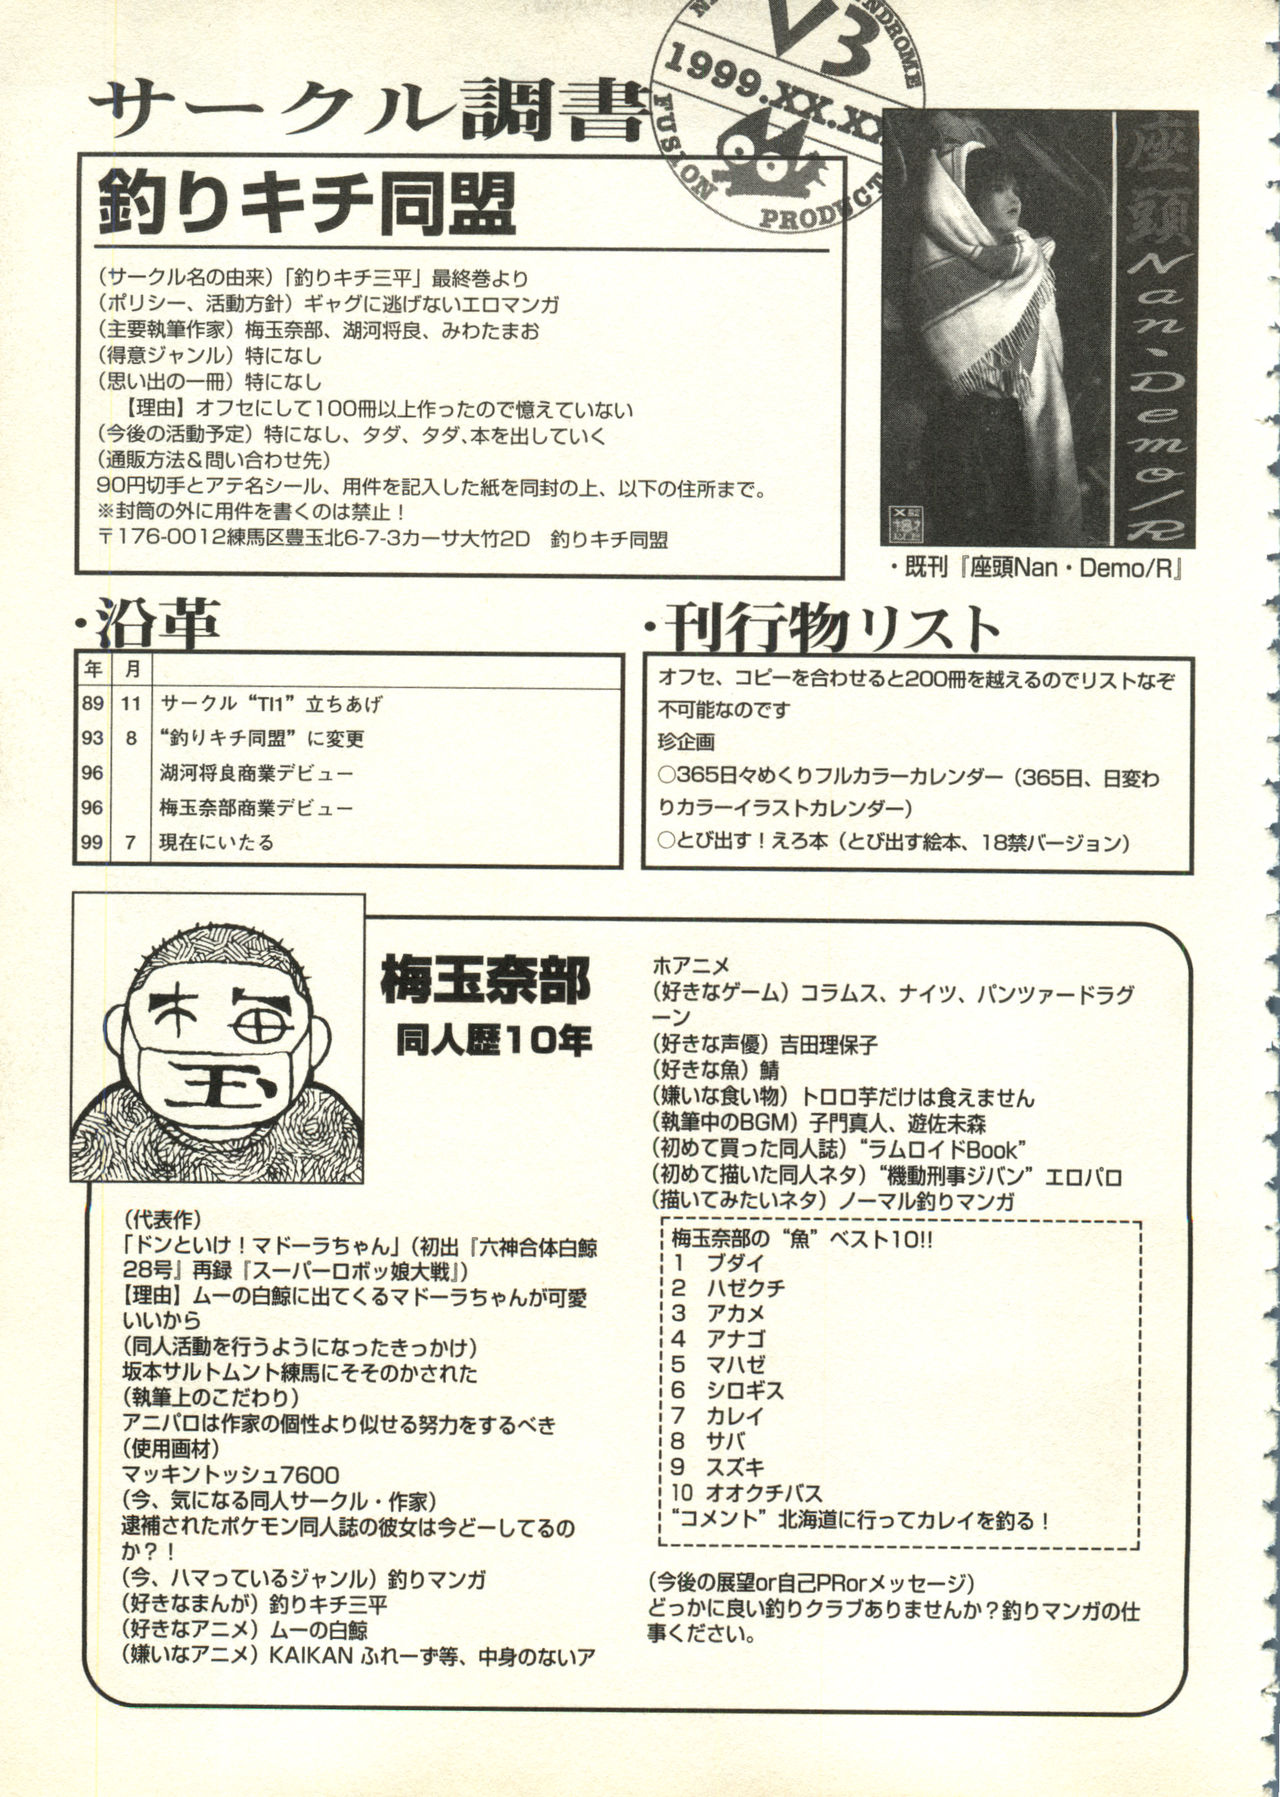 サークル調書
V3
1999.XX.XX
FUSION PRODUCT
釣りキチ同盟
(サークル名の由来)「釣りキチ三平」最終巻より
(ポリシー、活動方針)ギャグに逃げないエロマンガ
(主要執筆作家)梅玉奈部、湖河将良、みわたまお
(得意ジャンル)特になし
(思い出の一冊)特になし
【理由】オフセにして100冊以上作ったので憶えていない
(今後の活動予定)特になし、タダ、タダ、本を出していく
(通販方法&問い合わせ先)
90円切手とアテ名シール、用件を記入した紙を同封の上、以下の住所まで。
※封筒の外に用件を書くのは禁止!
〒176-0012練馬区豊玉北6-7-3カーサ大竹2D 釣りキチ同盟
座頭Nan・Demo/R
・既刊『座頭Nan・Demo/R』
・沿革
年 月
89 11 サークル“TI1”立ちあげ
93 8 “釣りキチ同盟”に変更
96 湖河将良商業デビュー
96 梅玉奈部商業デビュー
99 7 現在にいたる
・刊行物リスト
オフセ、コピーを合わせると200冊を越えるのでリストなぞ
不可能なのです
珍企画
○365日々めくりフルカラーカレンダー(365日、日変わ
りカラーイラストカレンダー)
○とび出す!えろ本(とび出す絵本、18禁バージョン)
梅
玉
梅玉奈部
同人歴10年
(代表作)
「ドンといけ!マドーラちゃん」(初出『六神合体白鯨
28号』再録『スーパーロボッ娘大戦』)
【理由】ムーの白鯨に出てくるマドーラちゃんが可愛
いいから
(同人活動を行うようになったきっかけ)
坂本サルトムント練馬にそそのかされた
(執筆上のこだわり)
アニパロは作家の個性より似せる努力をするべき
(使用画材)
マッキントッシュ7600
(今、気になる同人サークル・作家)
逮補されたポケモン同人誌の彼女は今どーしてるの
か?!
(今、ハマっているジャンル)釣りマンガ
(好きなまんが)釣りキチ三平
(好きなアニメ)ムーの白鯨
(嫌いなアニメ)KAIKAN ふれーず等、中身のないア
ホアニメ
(好きなゲーム)コラムス、ナイツ、パンツァードラグ
ーン
(好きな声優)吉田理保子
(好きな魚)鯖
(嫌いな食い物)トロロ芋だけは食えません
(執筆中のBGM)子門真人、遊佐未森
(初めて買った同人誌)“ラムロイドBook”
(初めて描いた同人ネタ)“機動刑事ジバン”エロパロ
(描いてみたいネタ)ノーマル釣りマンガ
梅玉奈部の“魚”ベスト10!!
1 ブダイ
2 ハゼクチ
3 アカメ
4 アナゴ
5 マハゼ
6 シロギス
7 カレイ
8 サバ
9 スズキ
10 オオクチバス
“コメント”北海道に行ってカレイを釣る!
(今後の展望or自己PRorメッセージ)
どっかに良い釣りクラブありませんか?釣りマンガの仕
事ください。